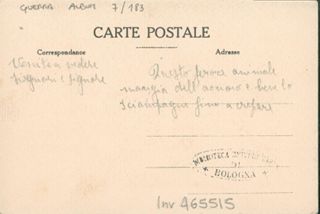 GUERRA ALBUM 7/183
CARTE POSTALE
Correspondance
Adresse
Venite a vedere
signori e signore
Questo porco animale
mangia dell'onore e beve lo
sciampagna fino a crepare
BIBLIOTECA
DI
BOLOGNA
Inv 465515